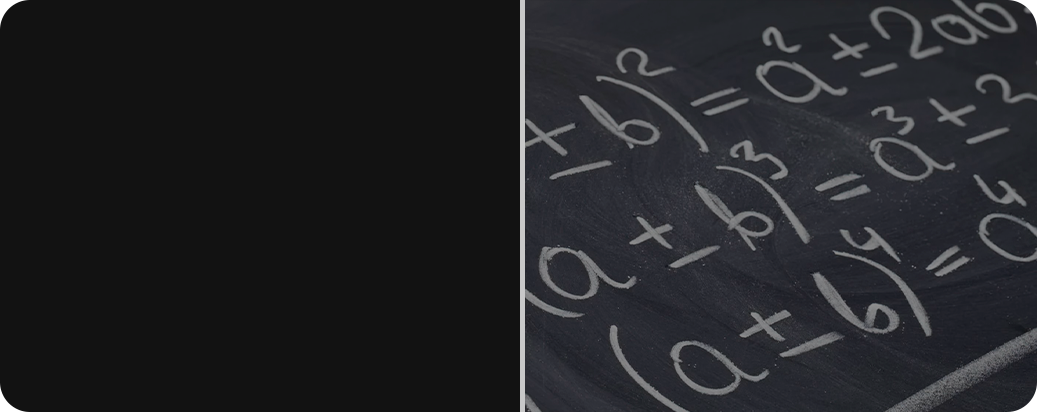 ± b)² = a² ± 2ab
(a ± b)³ = a³ ± 3
(a ± b)⁴ = a⁴